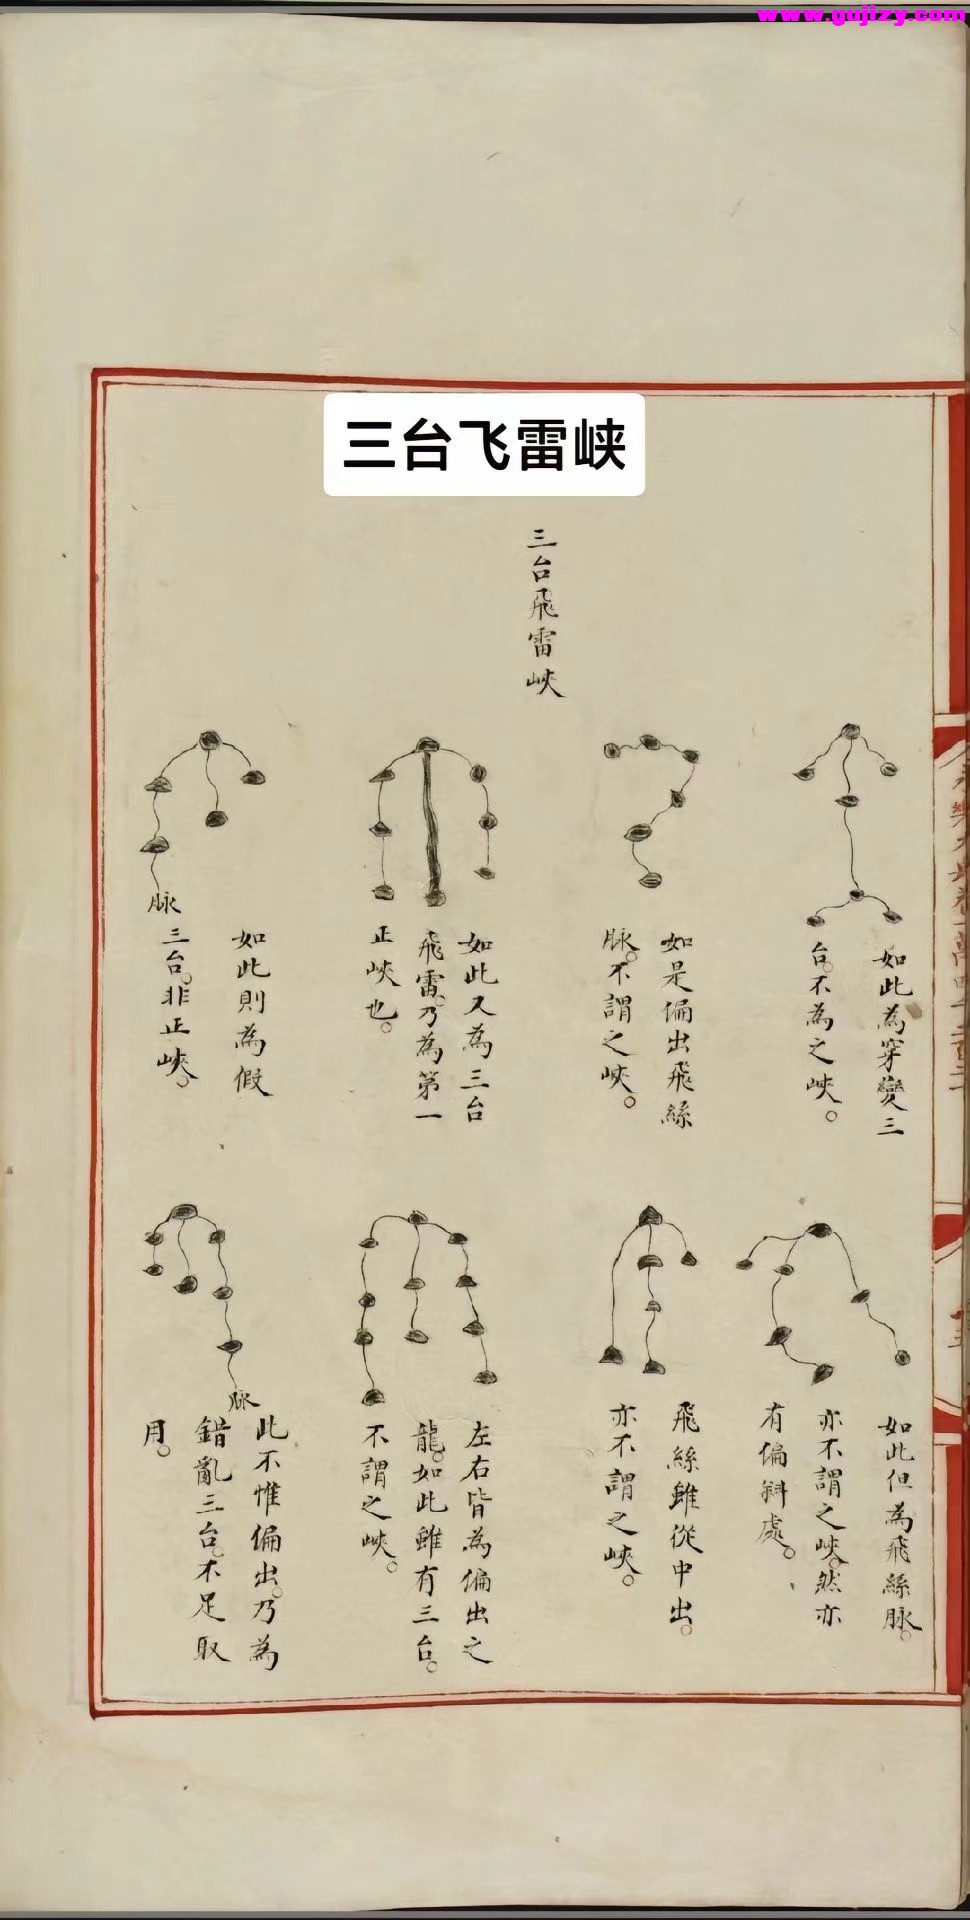 www.gujizy.com
三台飞雷峡
三台飛雷峽
如此為穿變三
台。不為之峽。
如是偏出飛絲
脉。不謂之峽。
如此又為三台
飛雷。乃為第一
正峽也。
如此則為假
三台。非正峽。
脉
如此但為飛絲脉。
亦不謂之峽。然亦
有偏斜處。
飛絲雖從中出。
亦不謂之峽。
左右皆為偏出之
龍。如此雖有三台。
不謂之峽。
脉
此不惟偏出。乃為
錯亂三台。不足取
用。